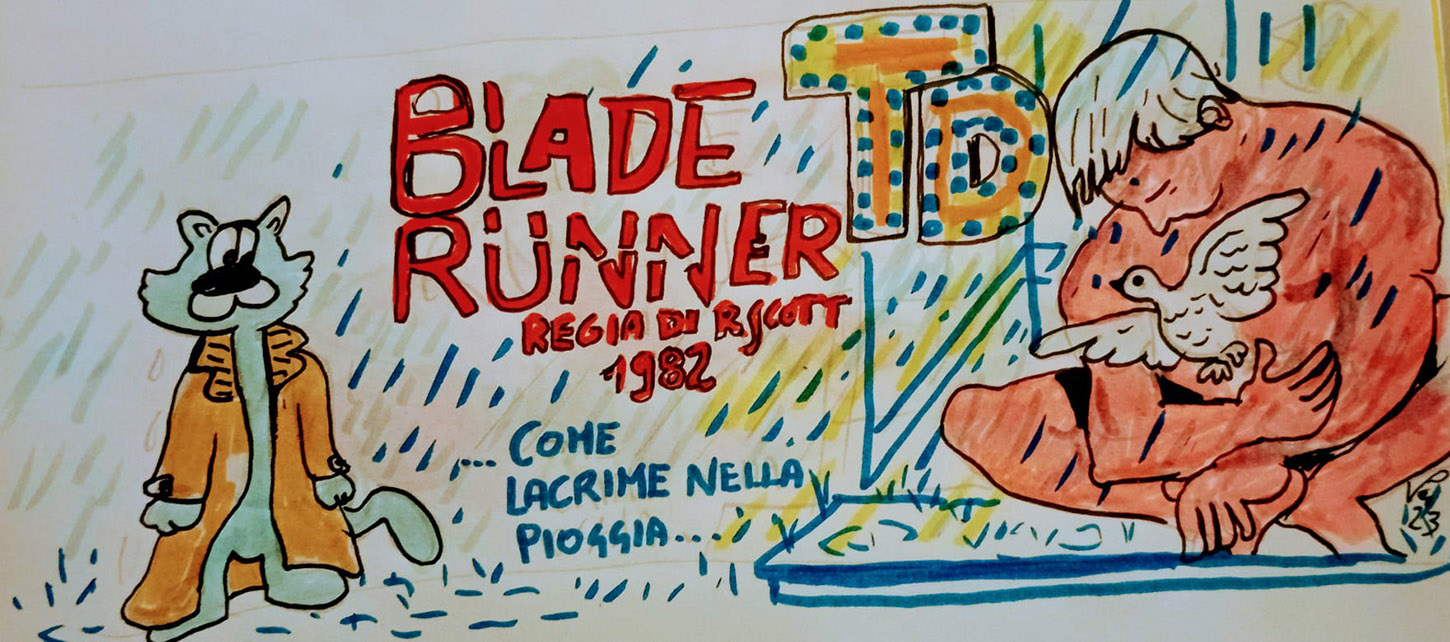 BLADE
RUNNER
REGIA DI R. SCOTT
1982
... COME
LACRIME NELLA
PIOGGIA....
TD